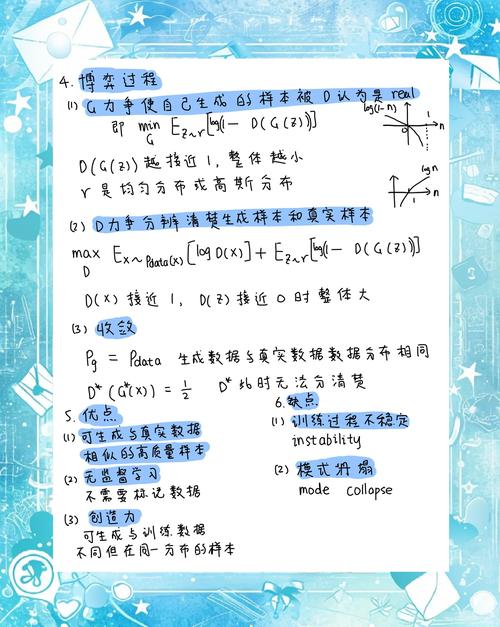 4. 博弈过程
(1) G力争使自己生成的样本被D认为是real
即 min_G E_{z~r}[log(1 - D(G(z))]
log(1-n)
0 1 n
D(G(z))越接近1,整体越小
r是均匀分布或高斯分布
log n
1 n
(2) D力争分辨清楚生成样本和真实样本
max_D E_{x~Pdata(x)}[log D(x)] + E_{z~r}[log(1 - D(G(z))]
D(x)接近1, D(z)接近0时整体大
(3) 收敛
Pg = Pdata 生成数据与真实数据数据分布相同
D*(G*(x)) = 1/2 D*此时无法分清楚
5. 优点
(1) 可生成与真实数据
相似的高质量样本
(2) 无监督学习
不需要标记数据
(3) 创造力
可生成与训练数据
不同但在同一分布的样本
6. 缺点
(1) 训练过程不稳定
instability
(2) 模式坍塌
mode collapse